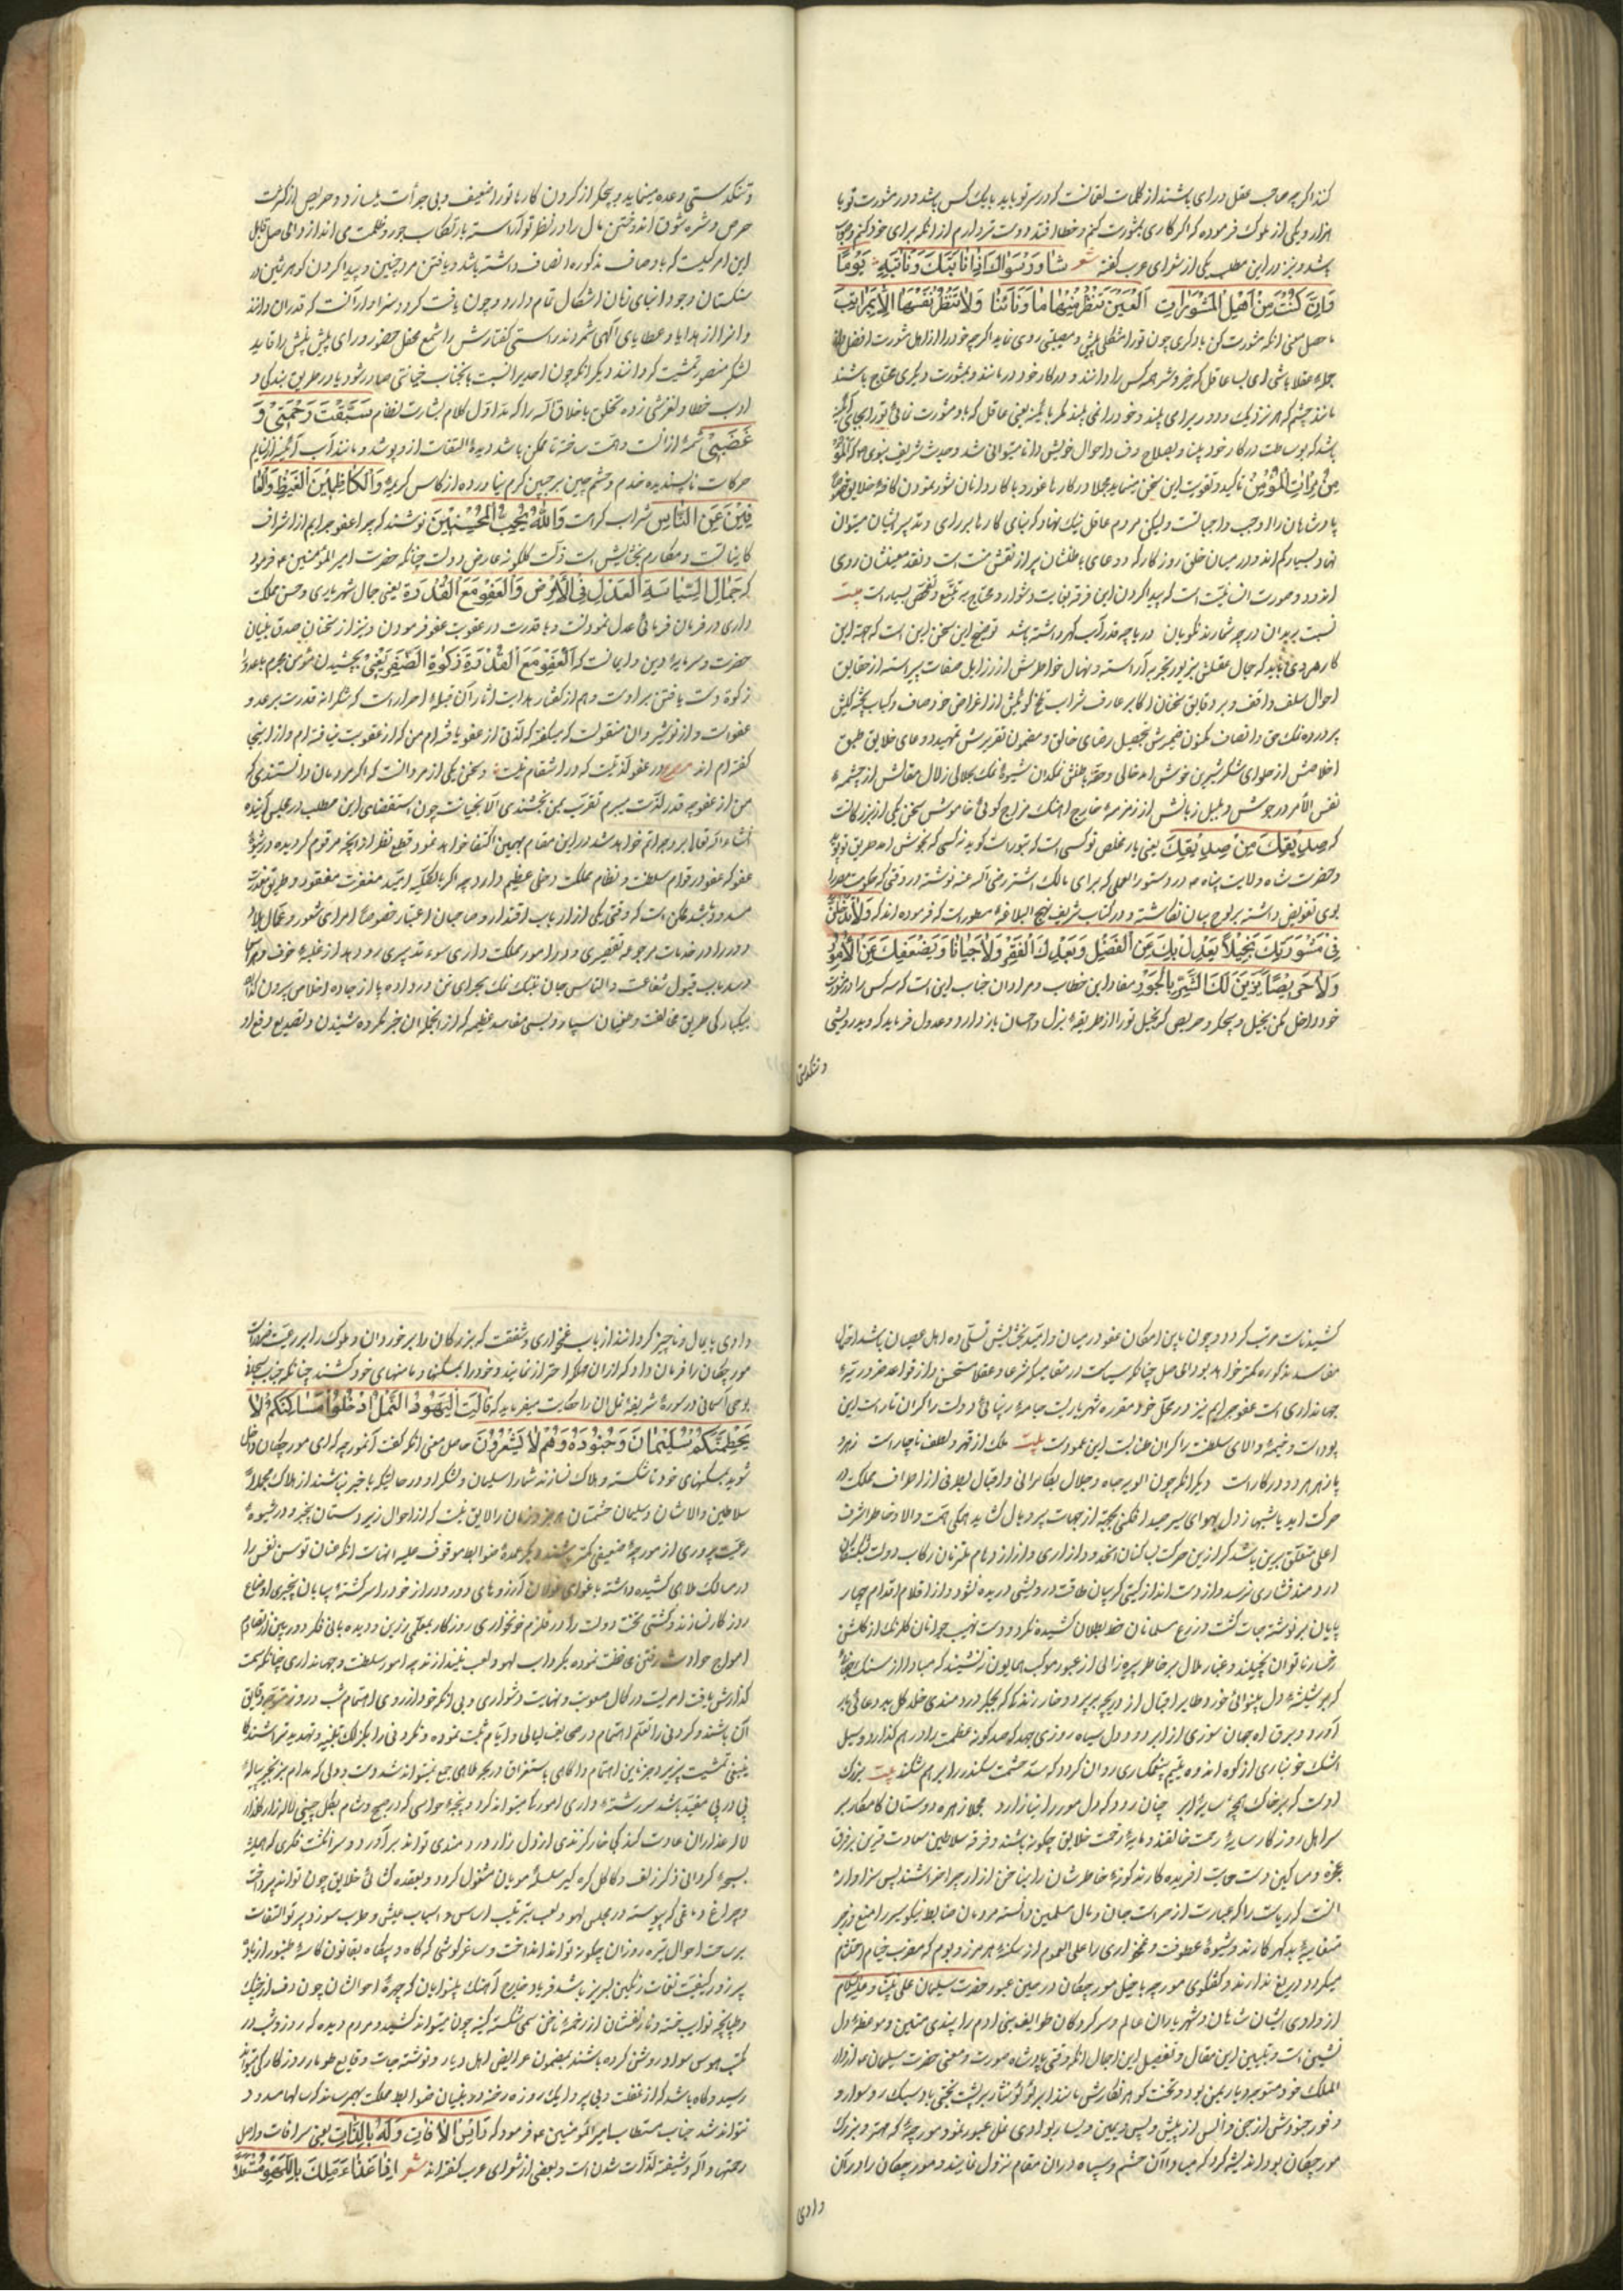 کنند اگر چه صاحب عقل و رای باشند از کلمات لقمانست که در سر تو باید با یک کس باشد و در مشورت تو با
هزار و یکی از ملوک فرموده که اگر کاری بمشورت کنم و خطا افتد دوست تر دارم از انکه برای خود کنم و صواب
باشد و نیز در این مطلب یکی از شعرای عرب گفته شعر شاور سواک اذا نابتک نائبة یوما
وان کنت من اهل المشورات العین تنظر منها ما ونائنا ولا تنظر نفسها الا بمرات
حاصل معنی انکه مشورت کن با دیگری چون ترا مشکلی پیش و مصیبتی روی نماید اگر چه خود را از اهل مشورت
جمله عقلا باشی ای بسا عاقل که خیر و شر همه کس را دانند و در کار خود در مانند و بمشورت دیگری محتاج باشند
مانند چشم که هر نزدیک و دور برای بیند و خود را نمی بیند مگر باینه یعنی عاقل که با و مشورت نمائی ترا بجای اینه
باشد که بوساطت در کار خود بینا و بصلاح وقت و احوال خویش دانا میتوانی شد و حدیث شریف نبوی ص که المؤ
من مرات المؤمن تاکید و تقویت این سخن مینماید مجملا در کارها غور و با کاردانان شور نمودن کافه خلایق خصوصا
پادشاهان را اوجب واجباتست ولیکن مردم عاقل نیک نهاد که بنای کارها بر رای و تدبیر ایشان میتوان
نهاد بسیار کم اند و در میان خلق روزگار که دعای باطنشان پر از نقش منت است و نقد معیشتشان روی
اندود و صورت انسانیت است که پیدا کردن این فرقه بغایت دشوار و محتاج به تتبع و تفحص بسیار است بیت
نسبت بر بدان درچه شمارند نکویان در باچه قدر آب گهر داشته باشد توضیح این سخن این است که جهة این
کار مردی باید که جمال عقلش بزیور تجربه آراسته و نهال خواطرش از رذایل صفات پیراسته از حقایق
احوال سلف واقف و بر دقایق سخنان اکابر عارف شراب تلخ گوئیش از اغراض خود صاف و کباب پخته گیش
پرورده نمک حق و انصاف مکنون ضمیرش تحصیل رضای خالق و مضمون تقریرش تمهید دعای خلایق طبق
اخلاصش از حلوای شکر شیرین خوش آمد خالی و حقه باطنش نمکدان شیوه نمک بحلالی زلال مقالش از چشمه
نفس الامر در جوش و بلبل زبانش از زمزمه خارج اهنک مزاج گوئی خاموش سخن یکی از بزرکانست
که صدیقک من صدقک یعنی یار مخلص تو کسی است که بتو راست گوید نه کسی که بخوش امد طریق تو پوید
و حضرت شاه ولایت پناه ع در دستور العملی که برای مالک اشتر رضی الله عنه نوشته در وقتی که حکومت مصر را
بوی تفویض داشته بر لوح بیان نگاشته و در کتاب شریف نهج البلاغه مسطور است که فرموده اند که ولا تدخلن
فی مشورتک بخیلا یعدل بک عن الفضل و یعدک الفقر ولا جبانا و یضعفک عن الامور
ولا حریصا یزین لک الشره بالجور مفاد این خطاب و مراد ان جناب این است که سه کس را در مشورت
خود داخل مکن بخیل و بیجگر و حریص که بخیل تو را از طریقه بذل و احسان باز دارد و عدول فرماید که و بدرویشی
و تنگدستی
و تنگدستی وعده مینماید و بیجگر از کردن کارها تو را ضعیف و بی جرأت میسازد و حریص از کثرت
حرص و شره شوق اندوختن مال را در نظر تو آراسته بارتکاب جور و ظلمت می اندازد و الحاصل قابل
این امر کیست که باوصاف مذکوره اتصاف داشته باشد و یافتن مرد چنین و پیدا کردن گوهر ثمین در
سنگستان وجود ابنای زمان اشکال تمام دارد و چون یافت گردد سزاوار آنست که قدر ان دانند
و انرا از هدایا و عطایای الهی شمرند راستی گفتارش را شمع محفل حضور و رای پیش بینش را قاید
لشکر منصور تمشیت گردانند دیگر انکه چون احدیرا نسبت بانجناب خیانتی صادر شود یا در طریق بندگی و
ادب خطا و لغزشی زده تخلق باخلاق اله را که مد اول کلام بشارت نظام سبقت رحمتی و
غضبی شمه از انست و همت ساخته تا ممکن باشد دیده التفات از و نپوشد و مانند آب آئینه از قیام
حرکات ناپسندیده خدم و حشم چین بر جبین کرم نیاورده از کاس کریمه والکاظمین الغیظ والعا
فین عن الناس شراب کرامت والله یحب المحسنین نوشند که چرا عفو جرایم از اشراف
کاینات و مکارم بخشایش است زلت گلگونه عارض دولت چنانکه حضرت امیر المؤمنین ع فرمود
که جمال السیاسة العدل فی الارض والعفو مع القدرة یعنی جمال شهریاری و حسن مملکت
داری در فرمان فرمائی عدل نمودنست و با قدرت در عقوبت عفو فرمودن و نیز از سخنان صدق بنیان
حضرت و سرمایه دین و ایمانست که العفو مع القدرة زکوة الظفر یعنی بخشیدن مؤمن مجرم بالعدوا
زکوة دست یافتن بر اوست و هم از گفتار هدایت اثار آن قبله احرار است که شکرانه قدرت بر عدو
عفو است و از نوشیروان منقولست که میگفته که لذتی از عفو یافته ام من که از عقوبت نیافته ام و از اینجا
گفته اند مصرع در عفو لذتیست که در انتقام نیست و سخن یکی از مردانست که اگر مردمان دانستندی که
من از عفو چه قدر لذت میبرم تقرب بمن نجستندی الا بخیانت چون استقصای این مطلب در مجلس آینده
انشاء الله تعالی ایراد خواهد شد در این مقام بهمین اکتفا خواهد نمود و قطع نظر از انچه مرقوم گردیده در شیوه
عفو که عفو در قوام سلطنت و نظام مملکت دخلی عظیم دارد چه اگر بالکلیه امید مغفرت مفقود و طریق معذرت
مسدود باشد ممکن است که وقتی یکی از ارباب اقتدار و صاحبان اعتبار خصوصا امرای ثغور و عمال بلاد
دور را در خدمات مرجوعه تقصیری و در امور مملکت داری سوء تدبیری رو دهد از غلبه خوف و هراس
و سد باب قبول شفاعت و التماس جان بتنک نمک بحرامی تن در داده پا از جاده اخلاص بیرون گذاره
بیکبارگی طریق مخالفت و طغیان سپارد و بسی مفاسد عظیمه که از انجمله ان جزیه گرده شیندن و تصدیع دفع او
کشیدنست مرتب گردد و چون باین امکان عفو در میان و امید بخشایش تسلی ده اهل عصیان باشد احتمال
مفاسد مذکوره کمتر خواهد بود الحاصل چنانکه سیاست در مقامیکه شرعا و عقلا مستحسن و از قواعد ضروریه
جهانداری است عفو جرایم نیز در محل خود مقرره شهریاریست جامه زیبائی دولت را گران تار است این
پود است و خیمه والای سلطنت را گر ان طنابست این عمود است بیت ملک از قهر و لطف ناچار است زهر و
پازهر هر دو در کار است دیگر انکه چون الویه جاه و جلال بکامرانی و اقبال بطرفی از اطراف مملکت در
حرکت اید یا شهباز دل بهوای سیر و صید افکنی بجهة از جهات پر و بال گشاید همگی همت والا و خاطر اشرف
اعلی متعلق برین باشد که از ین حرکت بسکنان انحدود ازاری و از ازدحام ملتزمان رکاب دولت بشکستگان
دردمند فشاری نرسد و از دست انداز گیتی گریبان طاقت درویشی دریده نشود و از اقلام اقدام چهار
پایان بر نوشته جات کشت و زرع مسلمانان خط بطلان کشیده نگردد و دست نهیب جوانان گلرنک از گلشن
رخسار ناتوان نچیند و غبار ملال بر خاطر پیره زالی از عبور موکب همایون ننشیند که مبادا از سنک جفا
گر هر شیشه دل بینوائی خورد طایر اقبال از دریچه بر پرد و خار زند گاه که بجگر دردمندی خلد گل بد دعائی بار
آورد و برق اه جهان سوزی از ابر درد دل سیاه روزی جهد که صد گونه عظمت را در هم گذارد و سیل
اشک خونباری از کوه اندوه یتیم پشمکی روان گردد که سد حشمت سکندر را بر هم شکند بیت بزرک
اوست که بر خاک همچو سایه ابر چنان رود که دل مور را نیازارد مجملا زهره دوستان کامکار بر
سر اهل روزگار سایه رحمت خالقند و مایه رحمت خلایق چگونه باشند و فرقه سلاطین سعادت قرین بر فرق
عجزه و مساکین دست حمایت افریده کارند گونه خاطرشان را بناخن ازار چه خراشند پس سزاوار
انست که ریاست را که عبارت از حراست جان و مال مسلمین دانسته مردمان ضابط نیکو سیر را منع و زجر
متغلبه بد گهر گمارند و شیوه عطوفت و غمخواری را علی العموم از سکنه هر مرز و بوم که مضرب خیام احتشام
میگردد دریغ ندارند و گفتگوی مورچه با خیل مورچگان در حین عبور حضرت سلیمان علی نبینا و علیه السلام
از وادی ایشان شاهان و شهریاران عالم و سرکردگان طوایف بنی ادم را پندی متین و موعظه دل
نشین است و تبیین این مقال و تفصیل این اجمال انکه وقتی پادشاه صورت و معنی حضرت سلیمان ع از دار
الملک خود متوجه دیار یمن بود و تخت گوهر نگارش مانند ابر لؤلؤ نثار بر پشت تختی باد سبک رو سوار و
وفور جنودش از جن و انس از پیش و پس و یمین و یسار بوادی نمل عبور نمود مورچه که مهتر و بزرک
مورچگان بود اندیشه کرد که مبادا آن حشم و سپاه در ان مقام نزول نمایند و مورچگان را در آن
وادی
وادی پایمال و ناچیز گردانند از باب غمخواری و شفقت که بزرگان را بر خوردان و ملوک را بر رعیت ضرورست
مورچگان را فرمان داد که از ان مهلکه احتراز نمایند و خود را بمسکنها و مامنهای خود کشند چنانکه جناب سبحانی
بوحی آسمانی در سوره شریفه نمل ان را حکایت میفرماید که قالت الیهود النمل ادخلوا مساکنکم لا
یحطمنکم سلیمان و جنوده و هم لا یشعرون حاصل معنی انکه گفت آنمورچه که ای مورچگان داخل
شوید بمسکنهای خود تا شکسته و هلاک نسازند شما را سلیمان و لشکر او در حالتیکه با خبر نباشند از هلاک مجملا
سلاطین والاشان و سلیمان حشمتان هر زمان را لایق نیست که از احوال زیر دستان بیخبر و در شیوه
رعیت پروری از مورچه ضعیفی کمتر باشند و دیگر عمده ضوابط موقوف علیه انهاست انکه عنان توسن نفس را
در مسالک ملاهی کشیده داشته باغوای غولان آرزوهای دور و دراز خود را سرگشته بیابان بیخبری اوضاع
روزگار نسازند و کشتی تخت دولت را در قلزم خونخواری روزگار بمعلمی رزین و دیده بانی فکر دوربین از تصادم
امواج حوادث وفتن محافظت نموده بگرداب لهو و لعب نیندازند چه امور سلطنت و جهانداری چنانکه سمت
گذارش یافت امریست در کمال صعوبت و نهایت دشواری و بی انکه خود از روی اهتمام شب و روز متوجه دقایق
آن باشند و کردنی را بقلم اهتمام در صحایف لیالی و ایام ثبت نموده و نکردنی را بگزلک تنبیه و تهدید تراشند کما
ینبغی تمشیت پذیر و هر چنین اهتمام و اگاهی باستغراق در بحر ملاهی جمع نمیتواند شد دست و دلی که مدام بزنجیر پیاله
پی در پی مقید باشد سر رشته داری امور کجا میتواند کرد و پنجه حواسی که در صبح و شام بگل چینی لاله زار رخسار
لاله عذاران عادت کند کی خار گزندی از دل زار دردمندی تواند برآورد و سر انگشت فکری که همیشه
بسبحه گردانی ذکر زلف و کاکل گره گیر سلسله مویان مشغول گردد و بعقده گشائی خلایق چون تواند پرداخت
و چراغ دماغی که پیوسته در مجلس لهو و لعب بترتیب اساس و اسباب عیش و طرب سوزد پرتو التفات
بر ساحت احوال تیره روزان چگونه تواند انداخت و ساغر گوشی که گاه و بیگاه بقانون کاسه طنبور از باده
پر زور کیفیت نغمات رنگین لبریز باشد فریاد خارج آهنک بینوایان که چهره احوالشان چون دف از چنک
و طپانچه نوایب خسته و تار نفسشان از زخمه ناخن ستمی شکسته گسسته چون میتواند شنید و مردم دیده که روز و شب در
مکتب هوس سواد روشن کرده باشند بمضمون عرایض اهل دیار و نوشتجات وقایع طومار روزگار کی میتواند
رسید و گاه باشد که از غفلت و بی پروایی یک روزه رخنه در بنیان ضوابط مملکت بهم رساند که بسالها مسدود
نتواند شد جناب مستطاب امیر المؤمنین ع فرمود که راس الافات وله باللذات یعنی سر افات و اصل
رحمتها واله و شیفته لذات شدن است و بعضی از شعرای عرب گفته اند شعر اذا غدا ملک باللهو مشتغلا